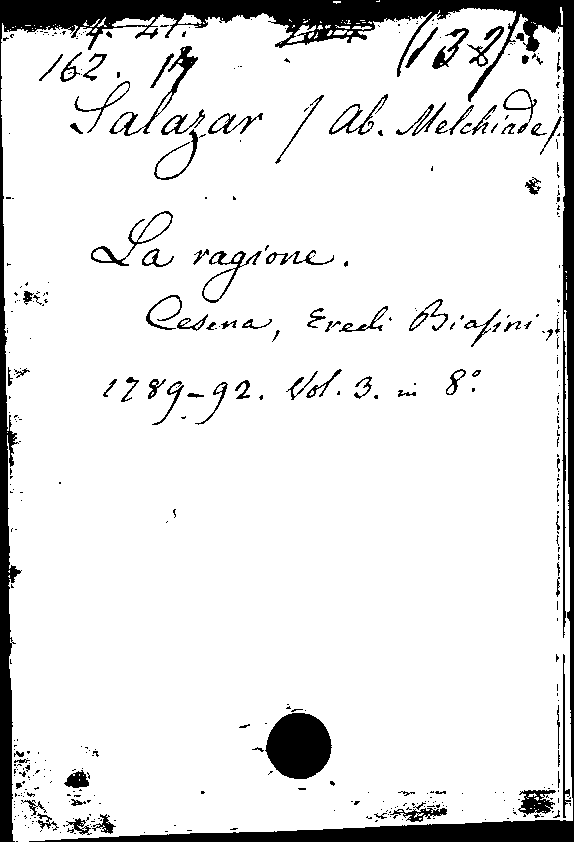 14. 21. (132)
162. 17
Salazar / Ab. Melchiade /
La ragione.
Cesena, Eredi Biasini,
1789-92. Vol. 3. in 8º.